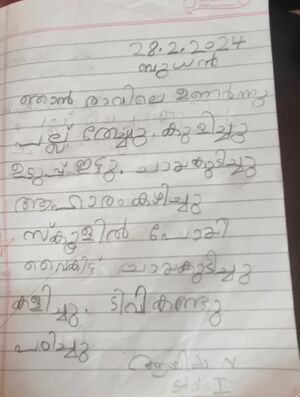 28.2.2024
ബുധൻ
ഞാൻ രാവിലെ ഉണർന്നു
പല്ല് തേച്ചു. കുളിച്ചു
ഉടുപ്പ് ഇട്ടു. ചായകുടിച്ചു
ആഹാരം കഴിച്ചു
സ്കൂളിൽ പോയി
വൈകിട്ട് ചായകുടിച്ചു
കളിച്ചു. ടിവി കണ്ടു
പഠിച്ചു
N
std: I